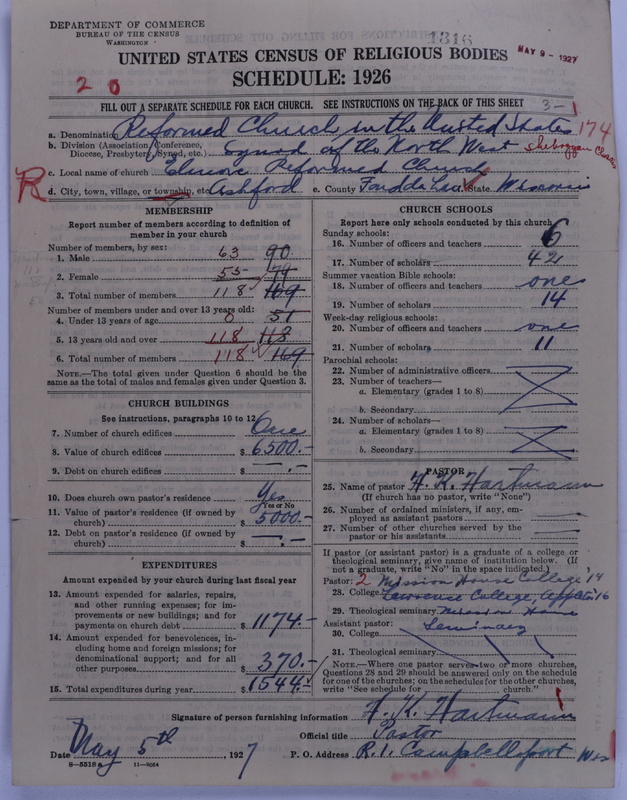 DEPARTMENT OF COMMERCE
BUREAU OF THE CENSUS
WASHINGTON
1316
MAY 9 - 1927
UNITED STATES CENSUS OF RELIGIOUS BODIES
SCHEDULE: 1926
2 0
FILL OUT A SEPARATE SCHEDULE FOR EACH CHURCH. SEE INSTRUCTIONS ON THE BACK OF THIS SHEET
3-1
a. Denomination Reformed Church in the United States 174
b. Division (Association, Conference, Diocese, Presbytery, Synod, etc.) Synod of the North West Sheboygan Classis
c. Local name of church Elmore Reformed Church
R d. City, town, village, or township, etc. Ashford e. County Fond du Lac f. State Wisconsin
MEMBERSHIP
Report number of members according to definition of
member in your church
Number of members, by sex:
1. Male 63 90
2. Female 55 79
3. Total number of members 118 169
Number of members under and over 13 years old:
4. Under 13 years of age 0 51
5. 13 years old and over 118 118
6. Total number of members 118 169
NOTE.—The total given under Question 6 should be the
same as the total of males and females given under Question 3.
CHURCH BUILDINGS
See instructions, paragraphs 10 to 12
7. Number of church edifices One
8. Value of church edifices $ 6500.-
9. Debt on church edifices $ — .-
10. Does church own pastor's residence Yes
Yes or No
11. Value of pastor's residence (if owned by
church) $ 5000.-
12. Debt on pastor's residence (if owned by
church) $ — .-
EXPENDITURES
Amount expended by your church during last fiscal year
13. Amount expended for salaries, repairs,
and other running expenses; for im-
provements or new buildings; and for
payments on church debt $ 1174.-
14. Amount expended for benevolences, in-
cluding home and foreign missions; for
denominational support; and for all
other purposes $ 370.-
15. Total expenditures during year $ 1544.-
CHURCH SCHOOLS
Report here only schools conducted by this church
Sunday schools:
16. Number of officers and teachers 6
17. Number of scholars 42
Summer vacation Bible schools:
18. Number of officers and teachers one
19. Number of scholars 14
Week-day religious schools:
20. Number of officers and teachers one
21. Number of scholars 11
Parochial schools:
22. Number of administrative officers
23. Number of teachers—
a. Elementary (grades 1 to 8)
b. Secondary
24. Number of scholars—
a. Elementary (grades 1 to 8)
b. Secondary
PASTOR
25. Name of pastor F. K. Hartmann
(If church has no pastor, write "None")
26. Number of ordained ministers, if any, em-
ployed as assistant pastors —
27. Number of other churches served by the
pastor or his assistants —
If pastor (or assistant pastor) is a graduate of a college or
theological seminary, give name of institution below. (If
not a graduate, write "No" in the space indicated.)
Pastor: 2 Mission House College, '14
28. College Lawrence College, '16
29. Theological seminary Mission House
Assistant pastor: Seminary
30. College
31. Theological seminary
NOTE.—Where one pastor serves two or more churches,
Questions 28 and 29 should be answered only on the schedule
for one of the churches; on the schedules for the other churches,
write "See schedule for church."
Signature of person furnishing information F. K. Hartmann
Official title Pastor
Date May 5th, 1927 P. O. Address R. 1. Campbellsport Wis
8—5518a 11—9064